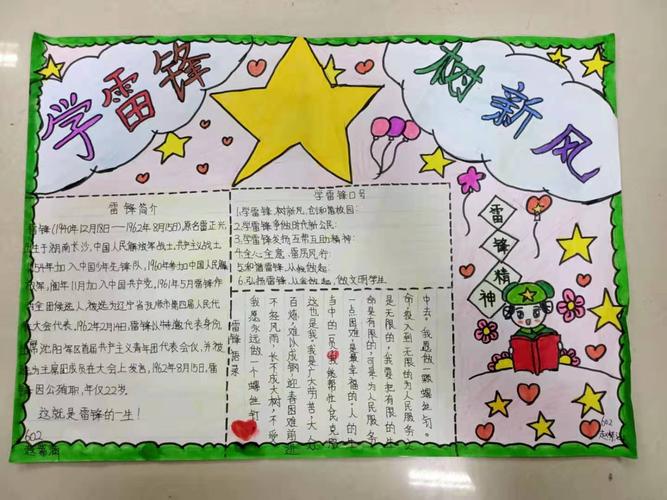 学雷锋
树新风
雷锋简介
雷锋(1940年12月18日——1962年8月15日),原名雷正兴
生于湖南长沙,中国人民解放军战士,共产主义战士
54年加入中国少年先锋队,1960年参加中国人民解
放军,同年11月加入中国共产党,1961年5月雷锋作
候选人,被选为辽宁省抚顺市第四届人民代
表大会代表,1962年2月14日,雷锋以特邀代表身份
席沈阳军区首届共产主义青年团代表会议,并被
为主席团成员在大会上发言,1962年8月15日,雷
因公殉职,年仅22岁。
这就是雷锋的一生!
602
学雷锋口号
1.学雷锋,树新风,创和谐校园;
2.学雷锋争做时代新公民;
3.学雷锋发扬互帮互助精神;
4.全心全意,雷厉风行;
5.和谐雷锋,从做起;
6.弘扬雷锋,从做起,做文明学生
雷锋精神
中去。我愿做一颗螺丝钉。
命,投入到无限的为人民服务
是无限的,我要把有限的生
命是有限的,可是为人民服务
一点困难,是最幸福的。人的生
当中的一员,我能帮忙人民克服
这也是我,我是广大劳苦大众
百炼,难以成钢。迎着困难前进
不经风雨,长不成大树,不受
我愿永远做一个螺丝钉
雷锋语录
602